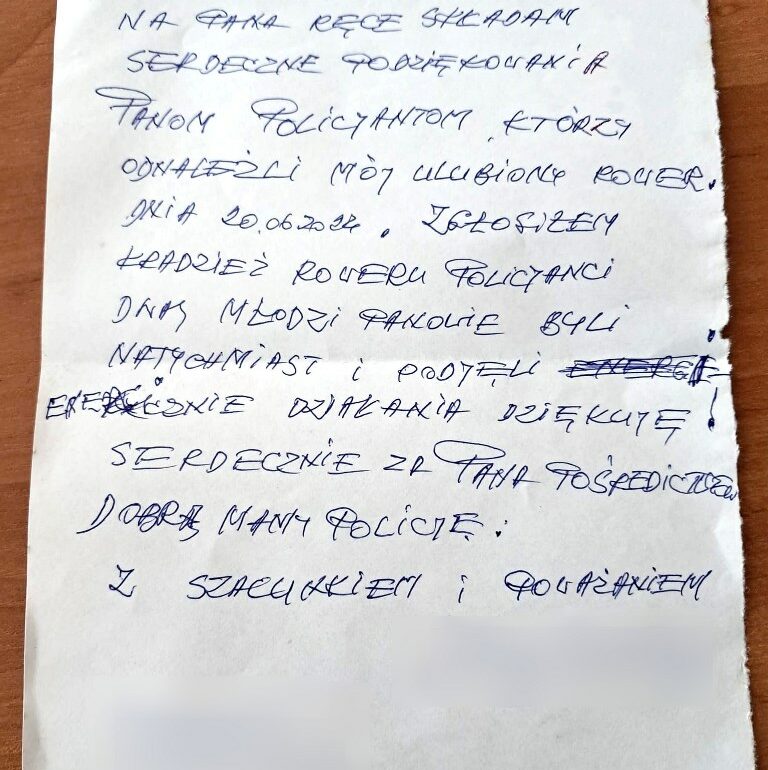 NA PANA RĘCE SKŁADAM
SERDECZNE PODZIĘKOWANIA
PANOM POLICJANTOM, KTÓRZY
ODNALEŹLI MÓJ ULUBIONY ROWER.
DNIA 20.06.2024. ZGŁOSIŁEM
KRADZIEŻ ROWERU POLICJANCI
DWAJ MŁODZI PANOWIE BYLI
NATYCHMIAST I PODJĘLI
ENERGICZNIE DZIAŁANIA DZIĘKUJĘ!
SERDECZNIE ZA PANA POŚREDICTWEM
DOBRĄ MAMY POLICJĘ.
Z SZACUNKIEM I POWAŻANIEM